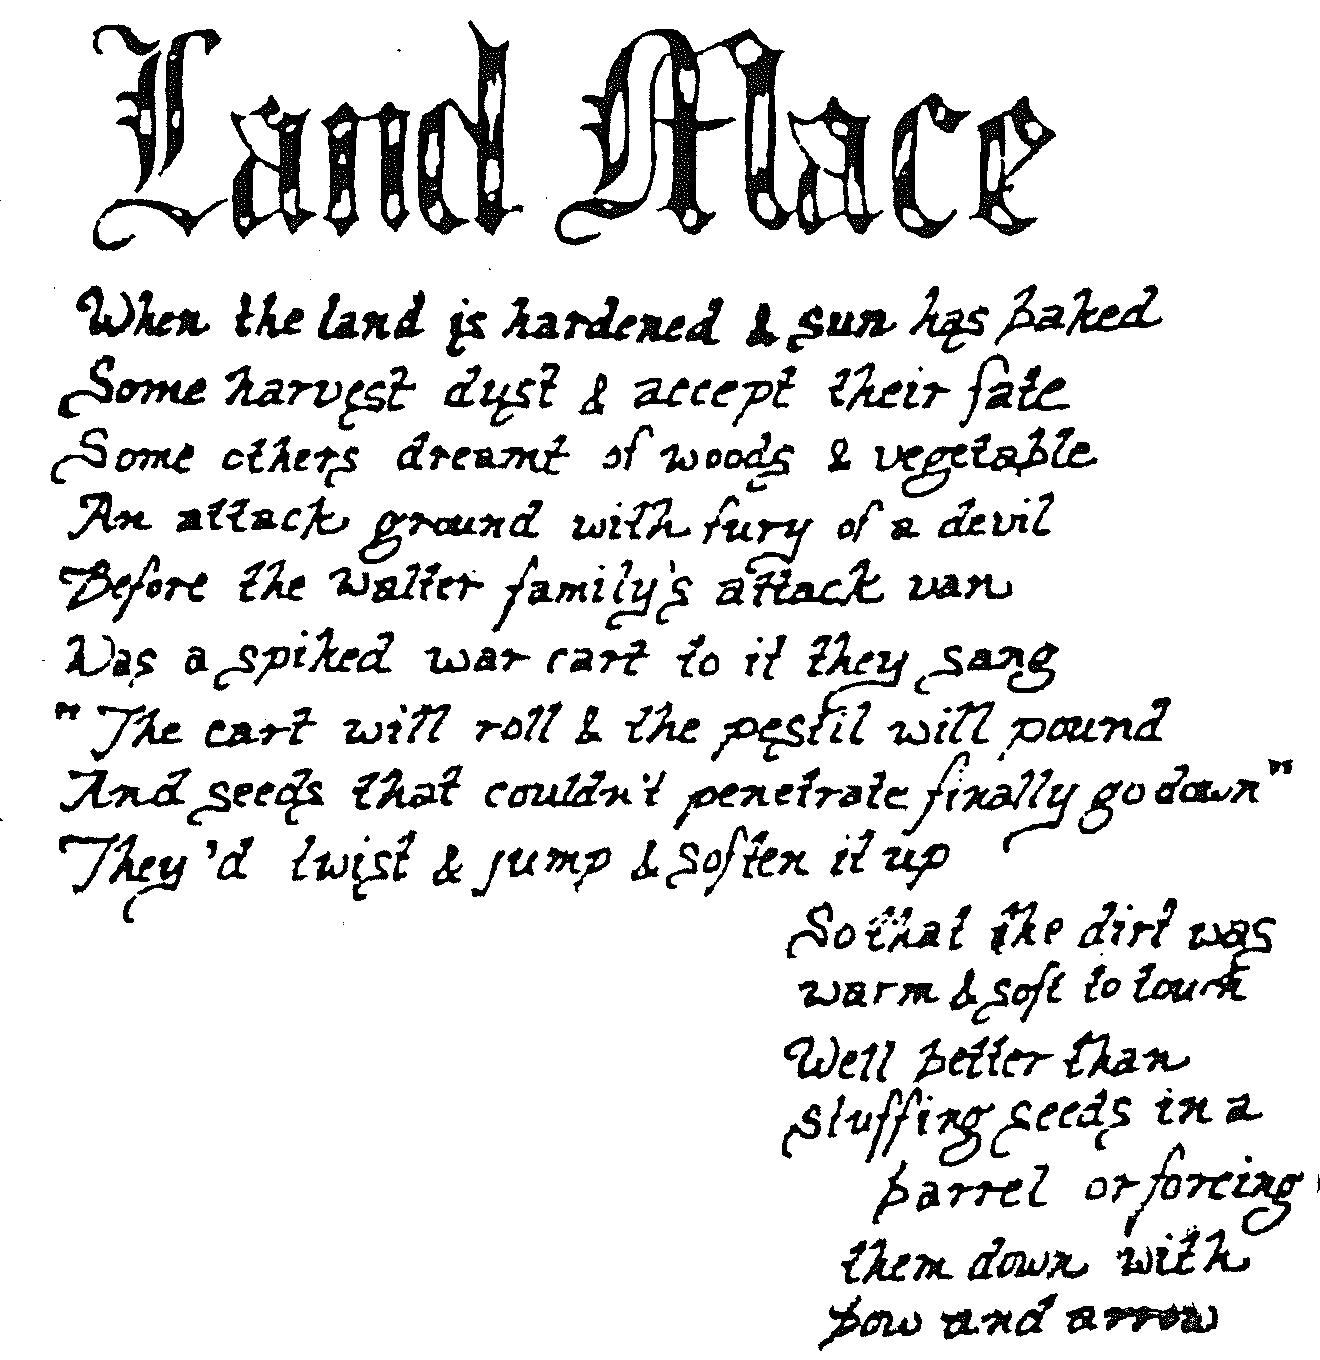 Land Mace
When the land is hardened & sun has baked
Some harvest dust & accept their fate
Some others dreamt of woods & vegetable
An attack ground with fury of a devil
Before the Walter family's attack van
Was a spiked war cart to it they sang
"The cart will roll & the pestil will pound
And seeds that couldn't penetrate finally go down"
They'd twist & jump & soften it up
So that the dirt was
warm & soft to touch
Well better than
stuffing seeds in a
barrel or forcing
them down with
bow and arrow